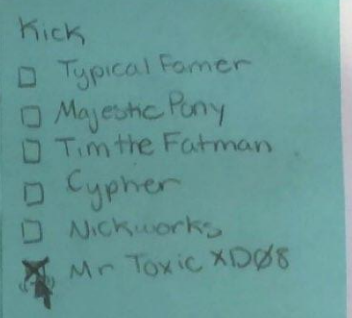 Kick
Typical Famer
Majestic Pony
Tim the Fatman
Cypher
Nickworks
Mr Toxic XD08